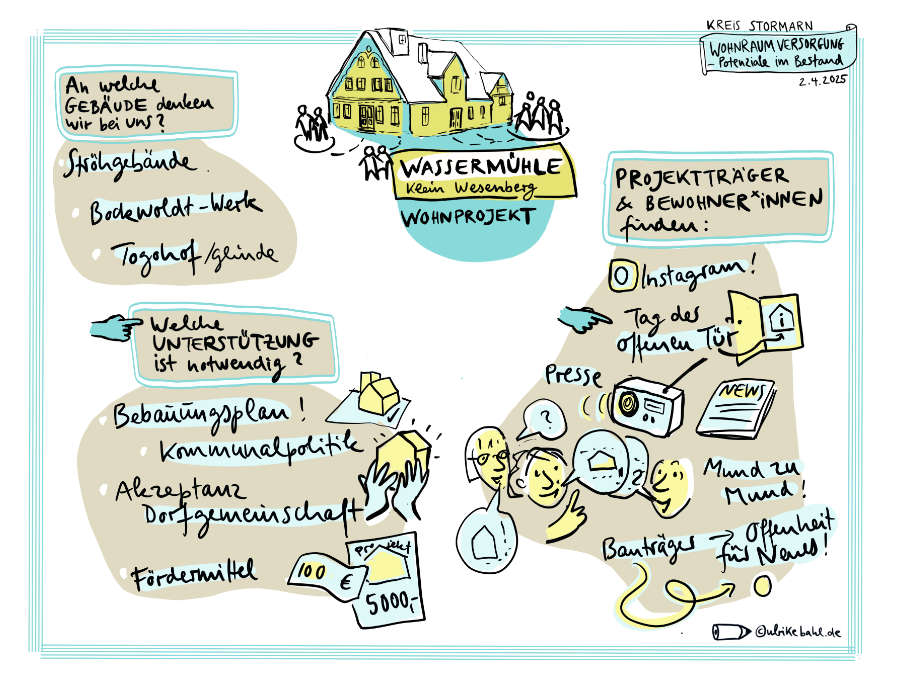 KREIS STORMARN
WOHNRAUMVERSORGUNG
- Potenziale im Bestand
2.4.2025
An welche
GEBÄUDE denken
wir bei uns?
Ströhgebäude
Bockwoldt-Werk
Togohof/glinde
WASSERMÜHLE
Klein Wesenberg
WOHNPROJEKT
Welche
UNTERSTÜTZUNG
ist notwendig?
Bebauungsplan!
Kommunalpolitik
Akzeptanz
Dorfgemeinschaft
Fördermittel
100 €
projekt
5000,-
PROJEKTTRÄGER
& BEWOHNER*INNEN
finden:
Instagram!
Tag der
offenen Tür
i
Presse
NEWS
?
!
?
Mund zu
Mund!
Bauträger → Offenheit
für Neues!
©ulrikebahl.de